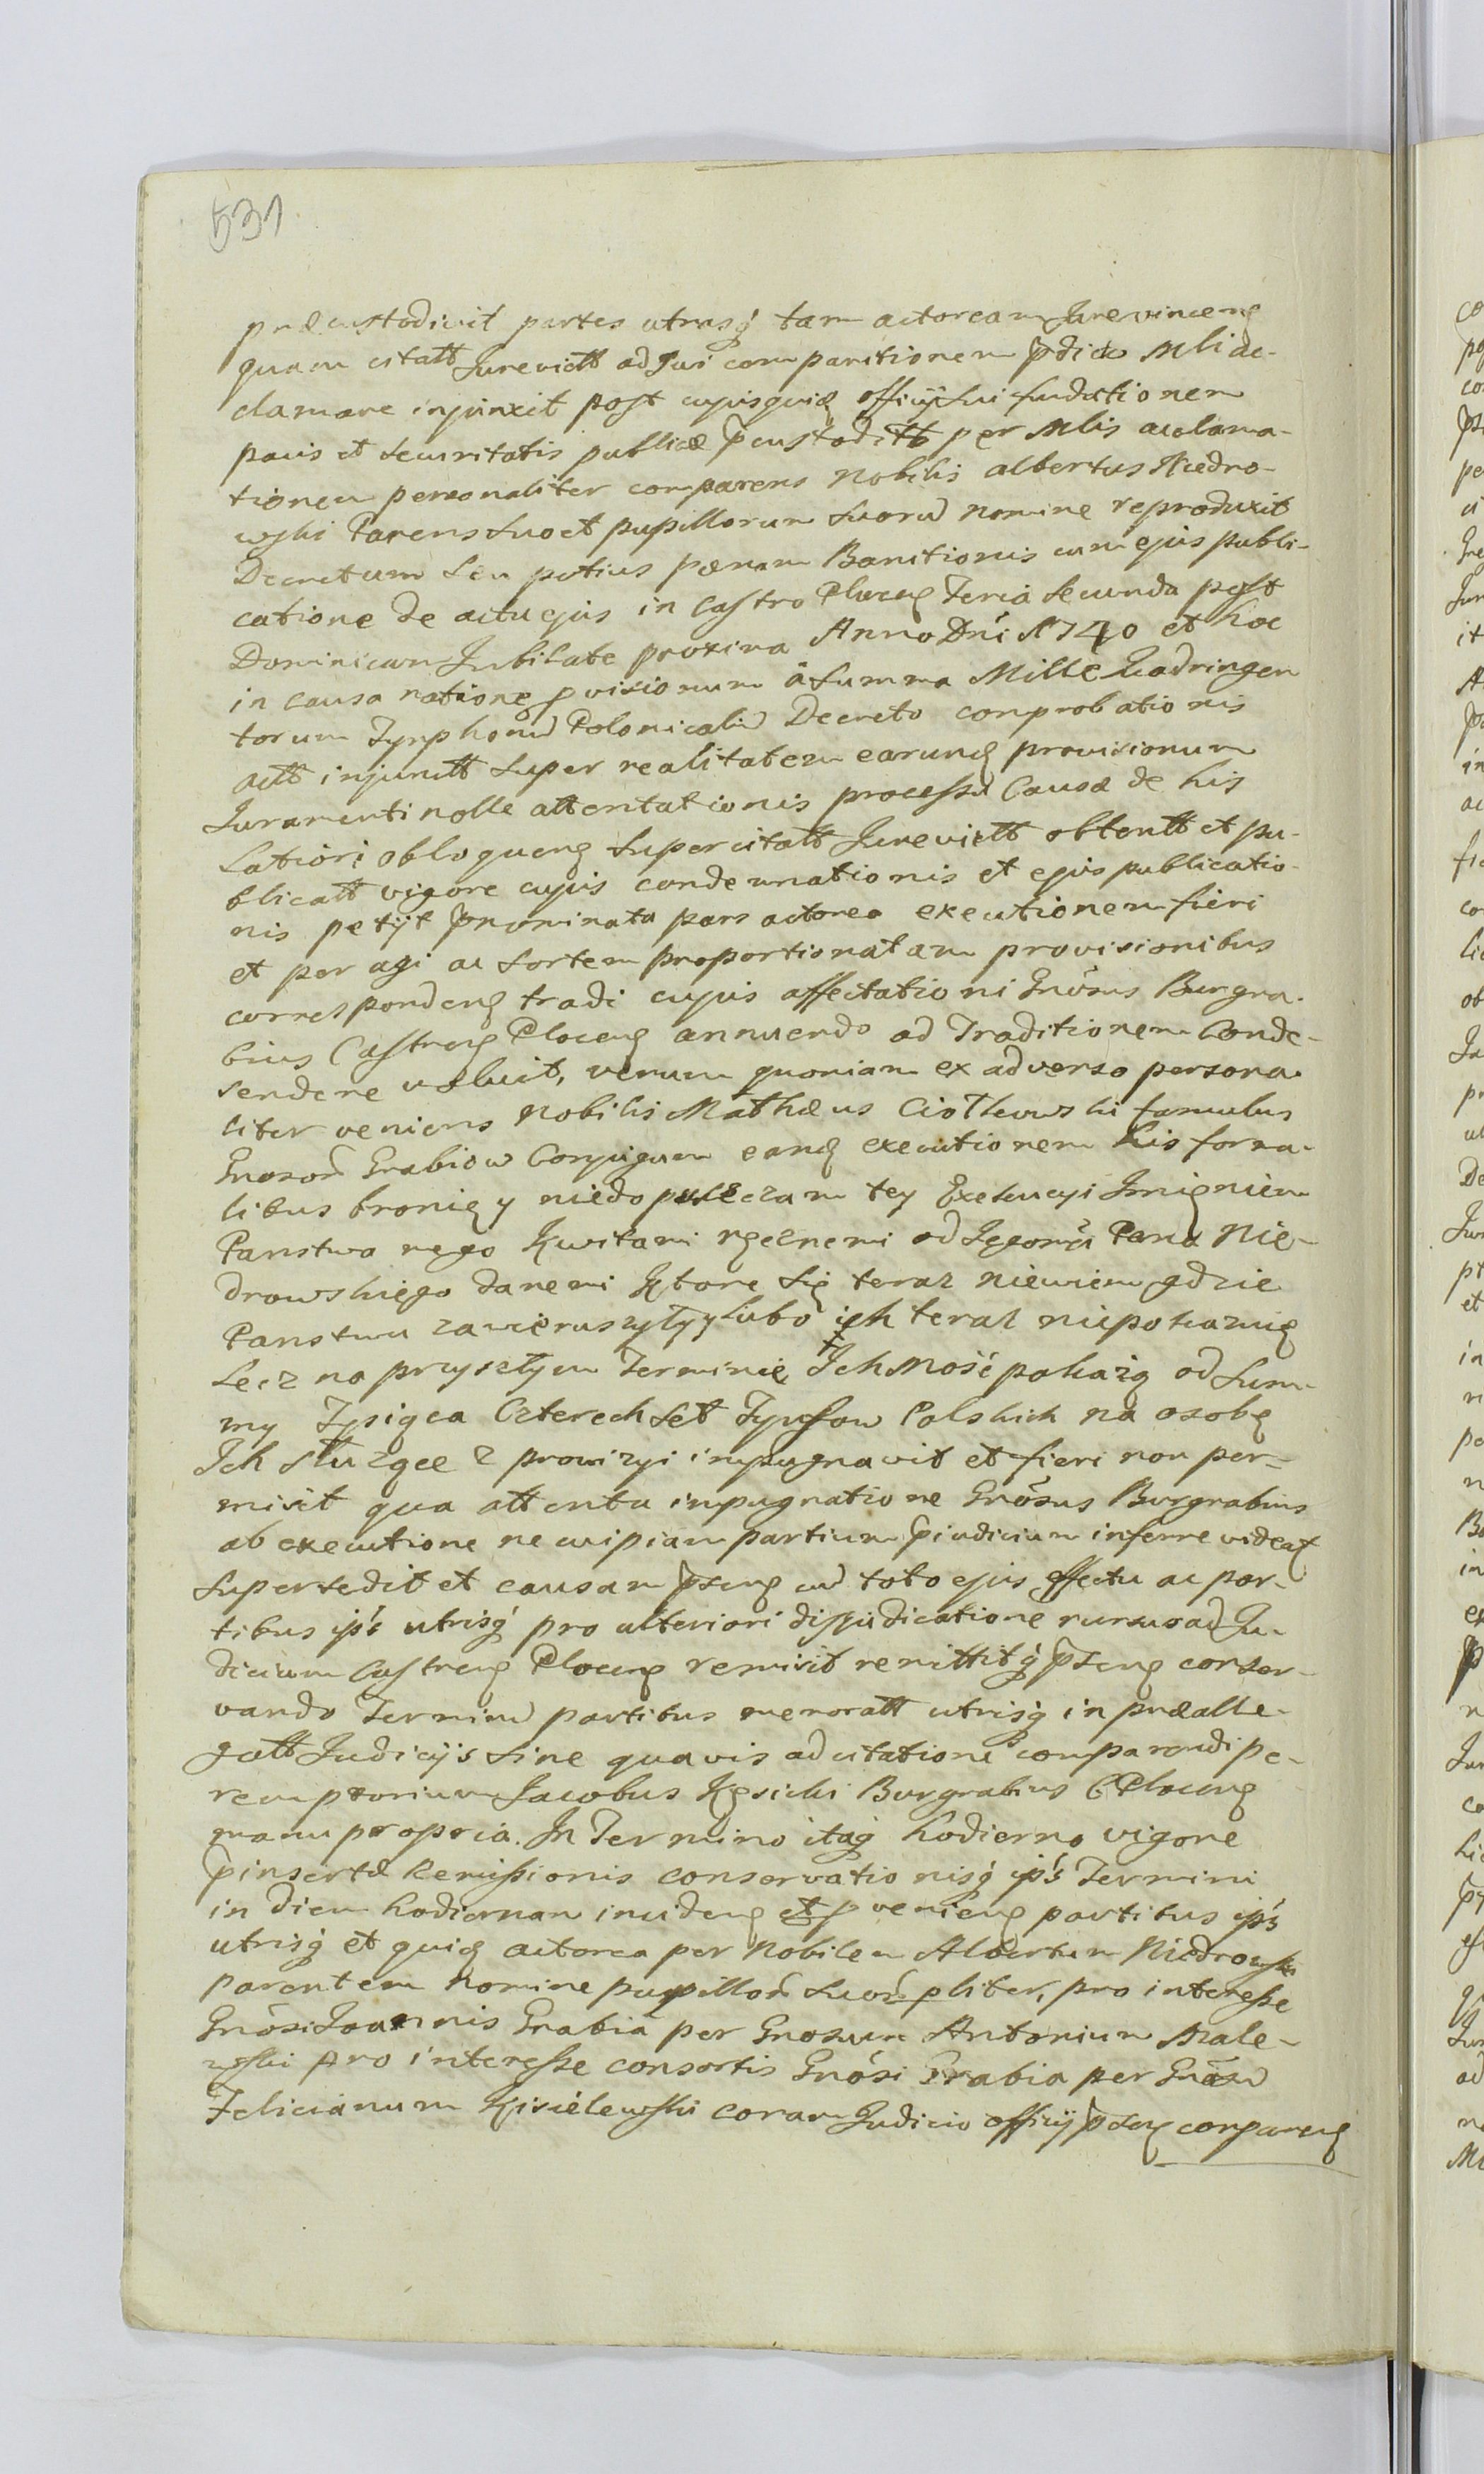 531
præcustodivit partes utrasq́ tam actoream Jurevinceng
quam citatt Jurevictt ad Jus comparitionem p̄dicto Mli ac-
clamare injunxit post cujusquid officij sui fundationem
pacis et securitatis publicæ p̄custoditt per Mlis acclama-
tionem personaliter comparens Nobilis Albertus Niedro-
wski Parens suo et pupillorum suorū nomine reproduxit
Decretum seu potius pænam Banitionis cum ejus publi-
catione de actu ejus in Castro Ploceng Feria secunda post
Dominicam Jubilate proxima Anno Dn̄i 1740 et hoc
in causa ratione provisionum à summa Mille Quadringen
torum Tynphonū Polonicaliū Decreto comprobationis
actt injunctt super realitatem earundg provisionum
Juramenti nolle attentationis processū Causæ de his
latiori obloqueng super citatt Jurevictt obtentt et pu-
blicatt vigore cujus condemnationis et ejus publicatio-
nis petijt p̄nominata pars actorea executionem fieri
et per agi ac sortem proportionatam provisionibus
correspondeng tradi cujus affectationi Gn̄osus Burgra-
bius Castreng Ploceng annuendo ad Traditionem Conde-
sendere voluit, verum quoniam ex adverso persona-
liter veniens Nobilis Mathæus Ciołkowski famulus
Gnosor̄ Grabiow Conjugum eandg executionem his forma-
libus bronię y niedopuszczam tey Exekucyi Jmięniem
Panstwa mego Kwitami ręcznemi od Jegomści Pana Nie-
drowskiego danemi Ktore się teraz niewiem gdzie
Panstwu zawieruszyły y lubo ich teraz niepokazuię
Lecz na przyszłym Terminie Jchmość pokażą od Sum-
my Tysiąca Czterech Set Tynfow Polskich na osobę
Jch służące z prowizyi inpugnavit et fieri non per-
misit qua attenta inpugnatione Gnōsus Burgrabius
ab executione ne cuipiam partium p̄iudicium inferre videat
supersedit et causam p̄seng cū toto ejus effectu ac par-
tibus ip̄s utrisq́ pro ulteriori disjudicatione rursus ad Ju-
dicium Castreng Ploceng remisit remittitq́ p̄seng conser-
vando Terminū partibus memoratt utrisq́ in præalle-
gatt Judicijs sine quavis adcitatione comparendi pe-
remptorium Jacobus Kęsicki Burgrabius C Ploceng
manu propria. Jn Termino itaq́ hodierno vigore
p̄insertæ Remissionis conservationisq́ ip̄s Termini
in diem hodiernam incideng et provenieng partibus ip̄s
utrisq́ et quidg actorea per Nobilem Albertum Niedrowski
Parentem Nomine pupillor̄ suor̄ p̄liter, pro interesse
Gnōsi Joannis Grabia per Gnosum Antonium Male-
wski pro interesse consortis Gnōsi Grabia per Gnōsū
Felicianum Kisielewski coram Judicio officij p̄seng compareng